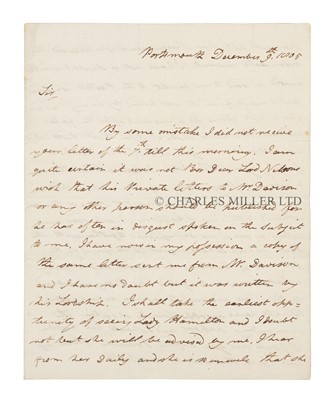 Portsmouth December 9th, 1805
Sir
By some mistake I did not receive
your letter of the 7th till this morning. I am
quite certain it was not Poor Dear Lord Nelsons
wish that his Private letters to Mr. Davison
or any other person should be published for
© CHARLES MILLER LTD
he has often in disgust spoken on the subject
to me, I have now in my possession a copy of
the same letter sent me from Mr. Davison
and I have no doubt but it was written by
his Lordship. I shall take the earliest opp-
tunity of seeing Lady Hamilton and I doubt
not but she will be advised by me, I hear
from her Daily and she is that she